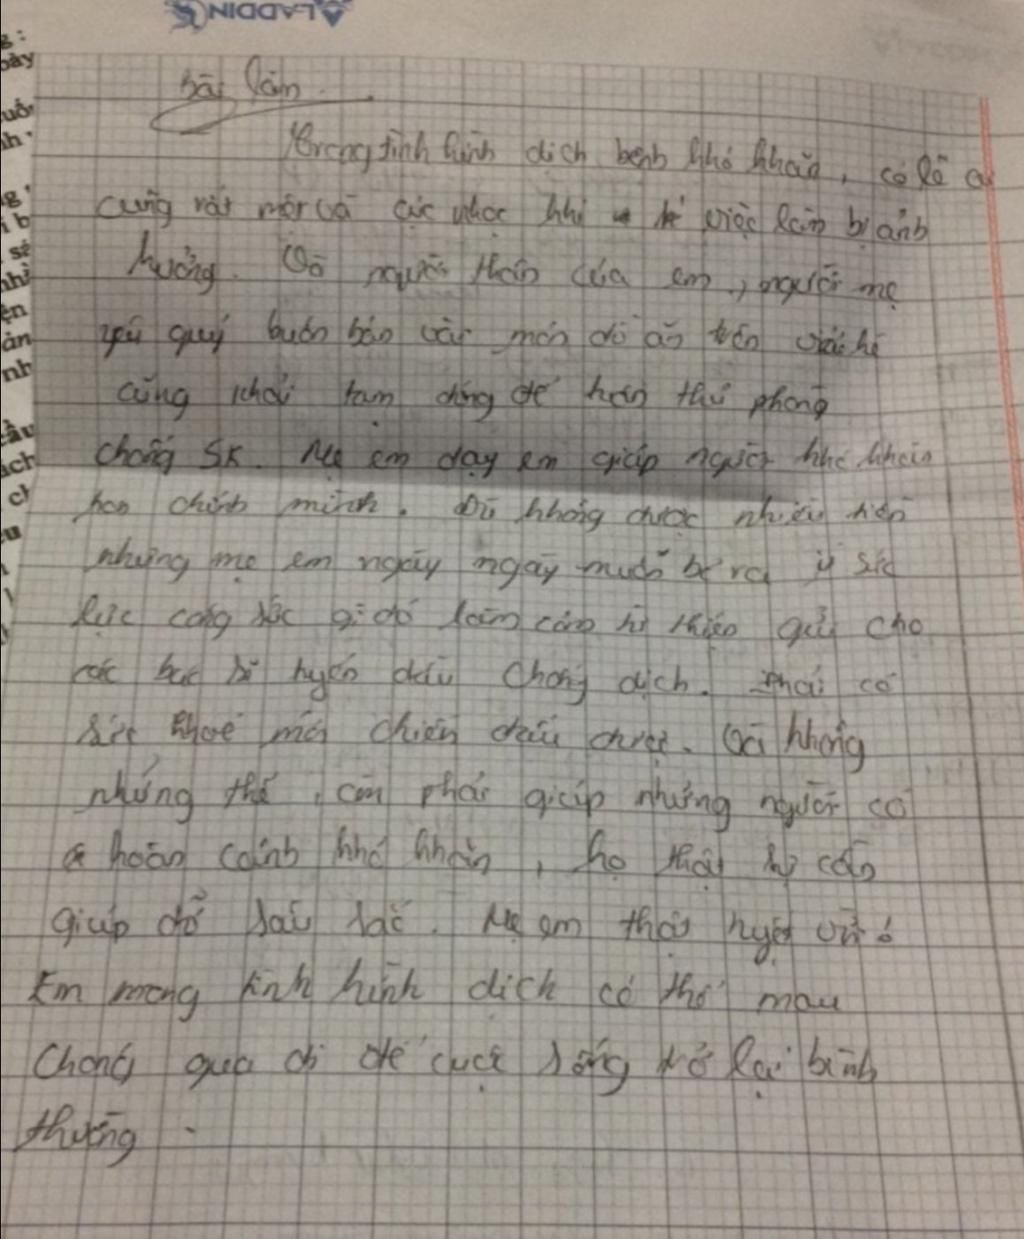 ALADDIN
bài làm
Trong tình hình dịch bệnh khó khăn, có lẽ ai
cũng rất mệt và cực nhọc khi việc làm bị ảnh
hưởng. Và người thân của em, người mẹ
yêu quý buôn bán vài món đồ ăn trên vỉa hè
cũng phải tạm dừng để tuân thủ phòng
chống SK. Mẹ em dạy em giúp người khó khăn
hơn chính mình. Dù không được nhiều tiền
nhưng mẹ em ngày ngày muốn bỏ ra ít sức
lực công sức gì đó làm cơm từ thiện gửi cho
các bác sĩ tuyến đầu chống dịch. Phải có
sức khoẻ mới chiến đấu được. Và không
những thế, còn phải giúp những người có
hoàn cảnh khó khăn, họ thật sự cần
giúp đỡ sâu sắc. Mẹ em thật tuyệt vời!
Em mong tình hình dịch có thể mau
chóng qua đi để cuộc sống trở lại bình
thường.